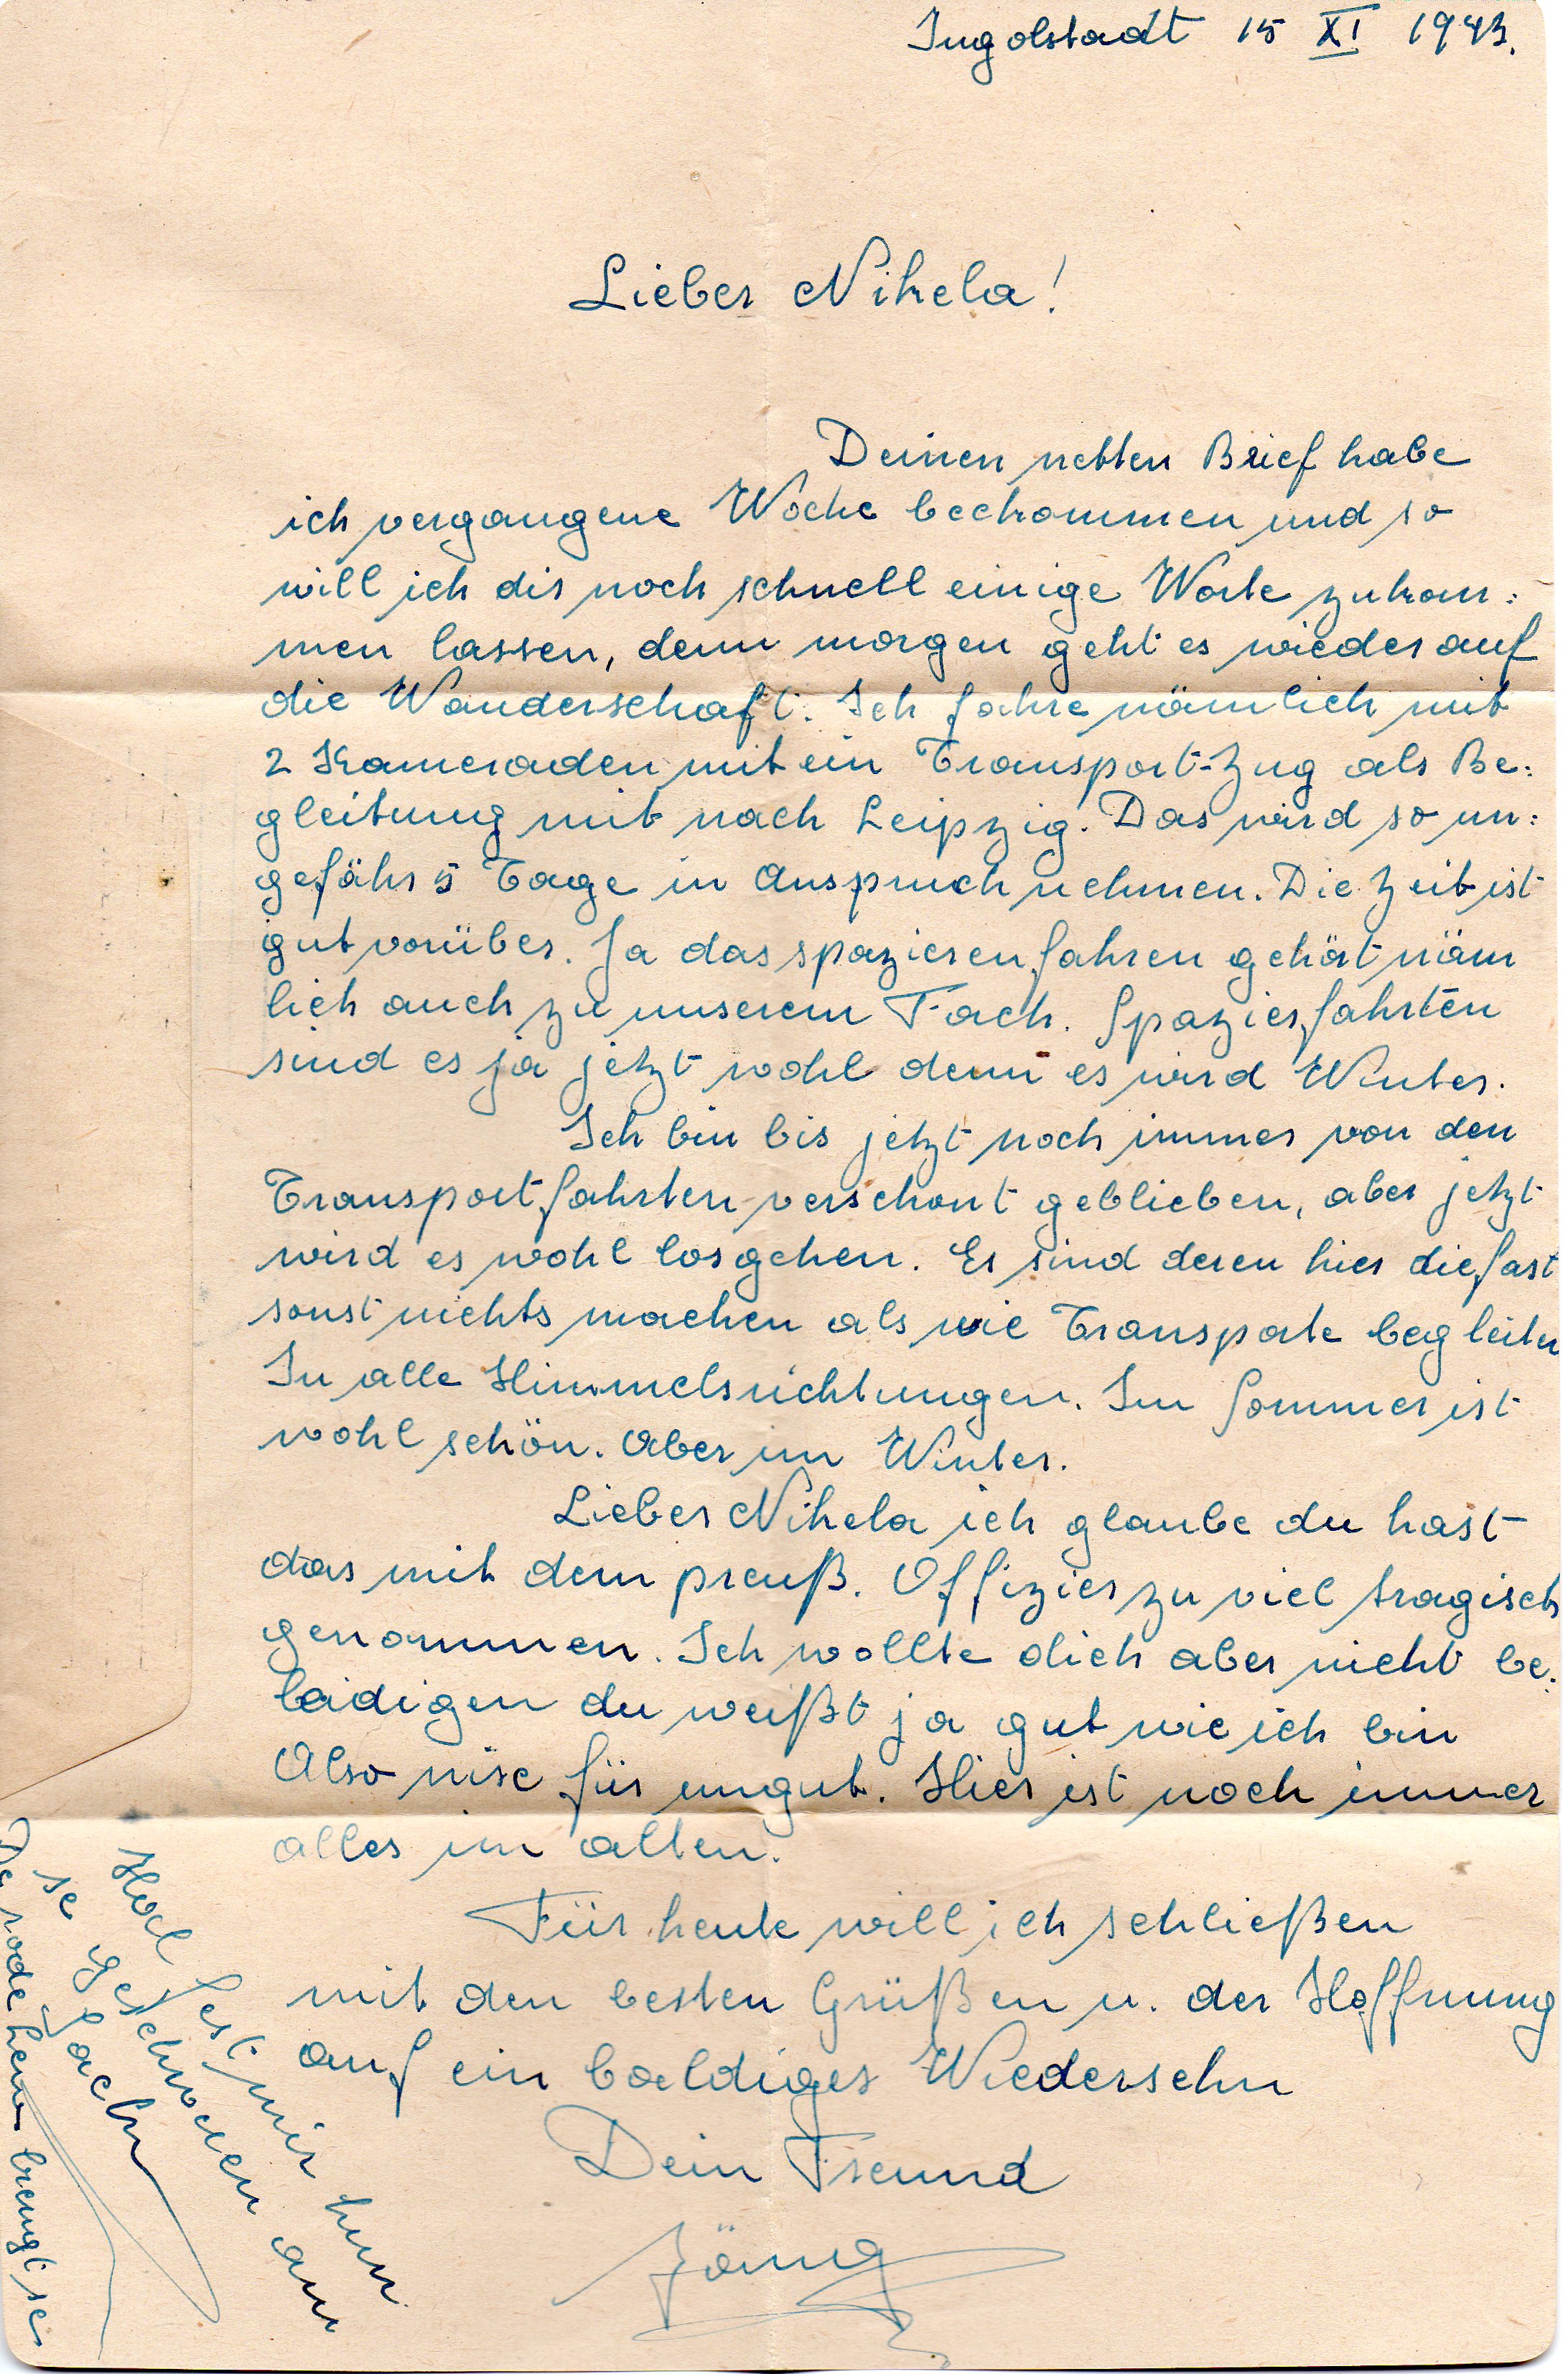 Ingolstadt 15 XI 1943.
Lieber Nikela!
Deinen netten Brief habe
ich vergangene Woche beckommen und so
will ich dir noch schnell einige Worte zukom:
men lassen, denn morgen geht es wieder auf
die Wanderschaft. Ich fahre nämlich mit
2 Kameraden mit ein Transport-Zug als Be:
gleitung mit nach Leipzig. Das wird so un:
gefähr 5 Tage in Anspruch nehmen. Die Zeit ist
gut vorüber. Ja das spazierenfahren gehört näm
lich auch zu unserem Fach. Spazierfahrten
sind es ja jetzt wohl denn es wird Winter.
Ich bin bis jetzt noch immer von den
Transportfahrten verschont geblieben, aber jetzt
wird es wohl losgehen. Es sind deren hier die fast
sonst nichts machen als wie Transporte begleiten
In alle Himmelsrichtungen. Im Sommer ist
wohl schön. Aber im Winter.
Lieber Nikela ich glaube du hast
das mit dem preuß. Offizier zu viel tragisch
genommen. Ich wollte dich aber nicht be:
laidigen du weißt ja gut wie ich bin
Also nixe für ungut. Hier ist noch immer
alles im alten.
Für heute will ich schließen
mit den besten Grüßen u. der Hoffnung
auf ein baldiges Wiedersehn
Dein Freund
Hol fest mir
se